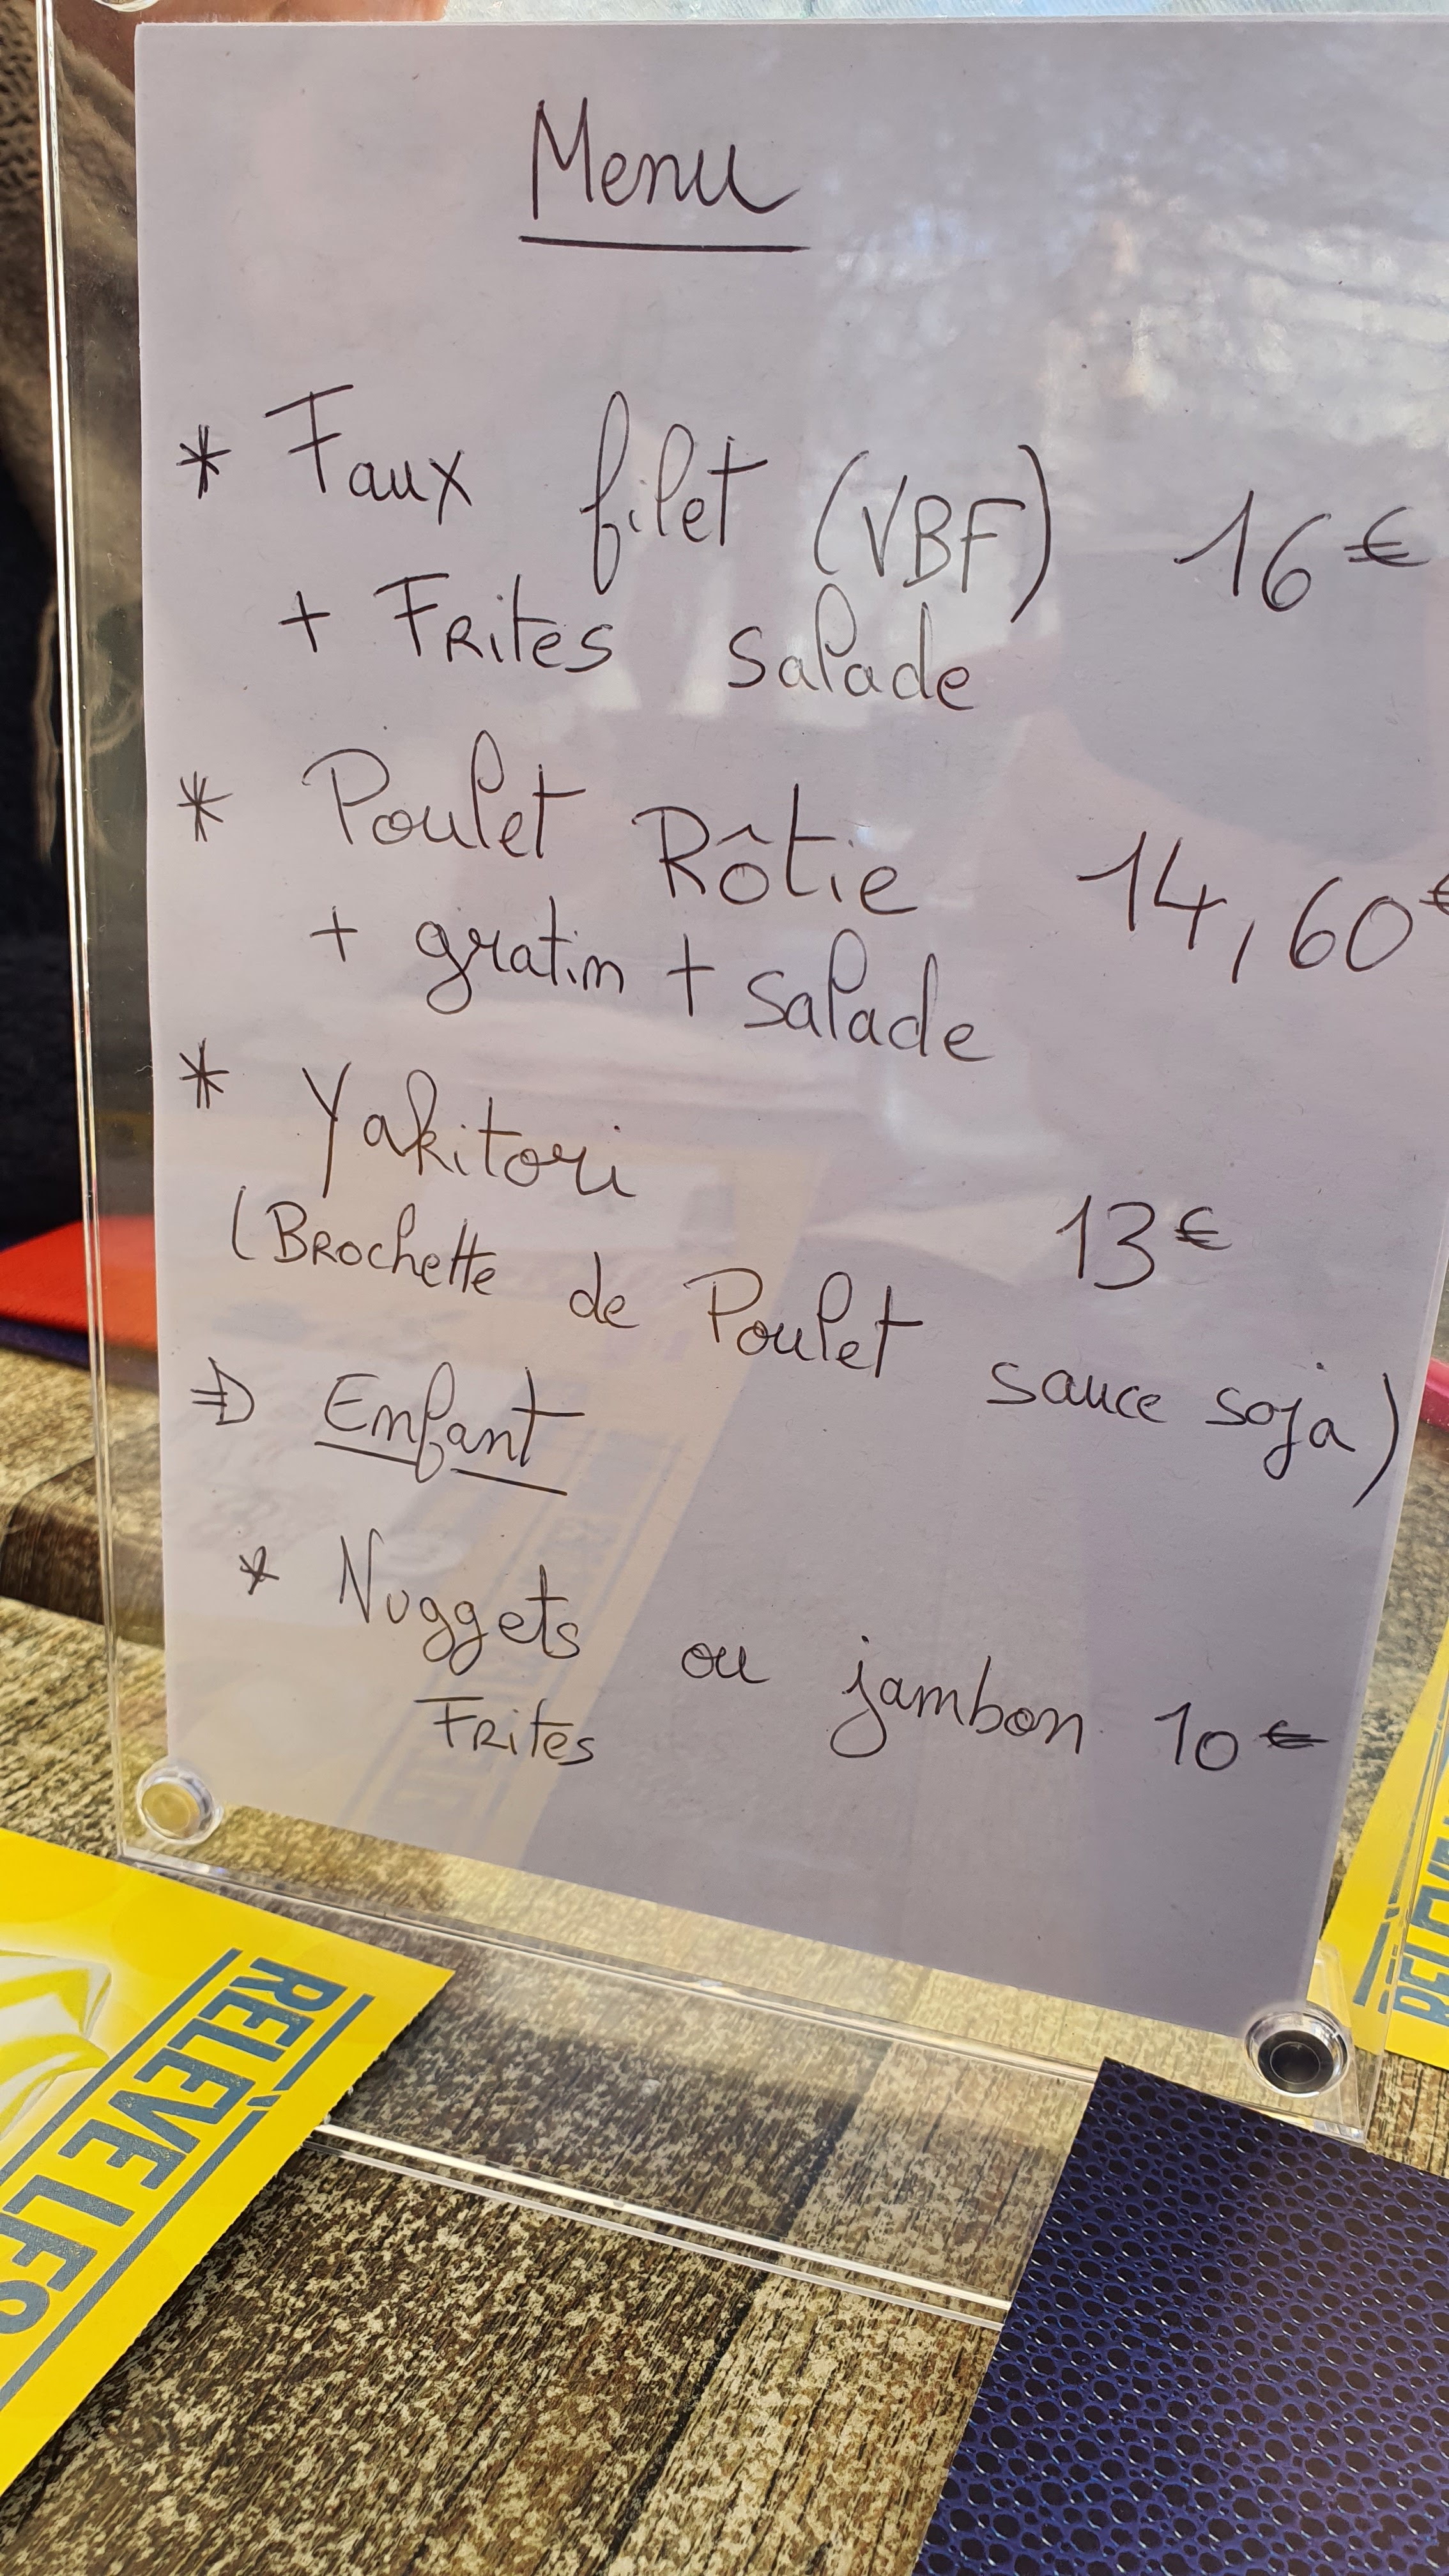 Menu
* Faux filet (VBF) 16€
+ Frites salade
* Poulet Rôtie 14,60€
+ gratin + salade
* Yakitori 13€
(Brochette de Poulet sauce soja)
⇒ Enfant
* Nuggets ou jambon 10€
Frites
RELEVE